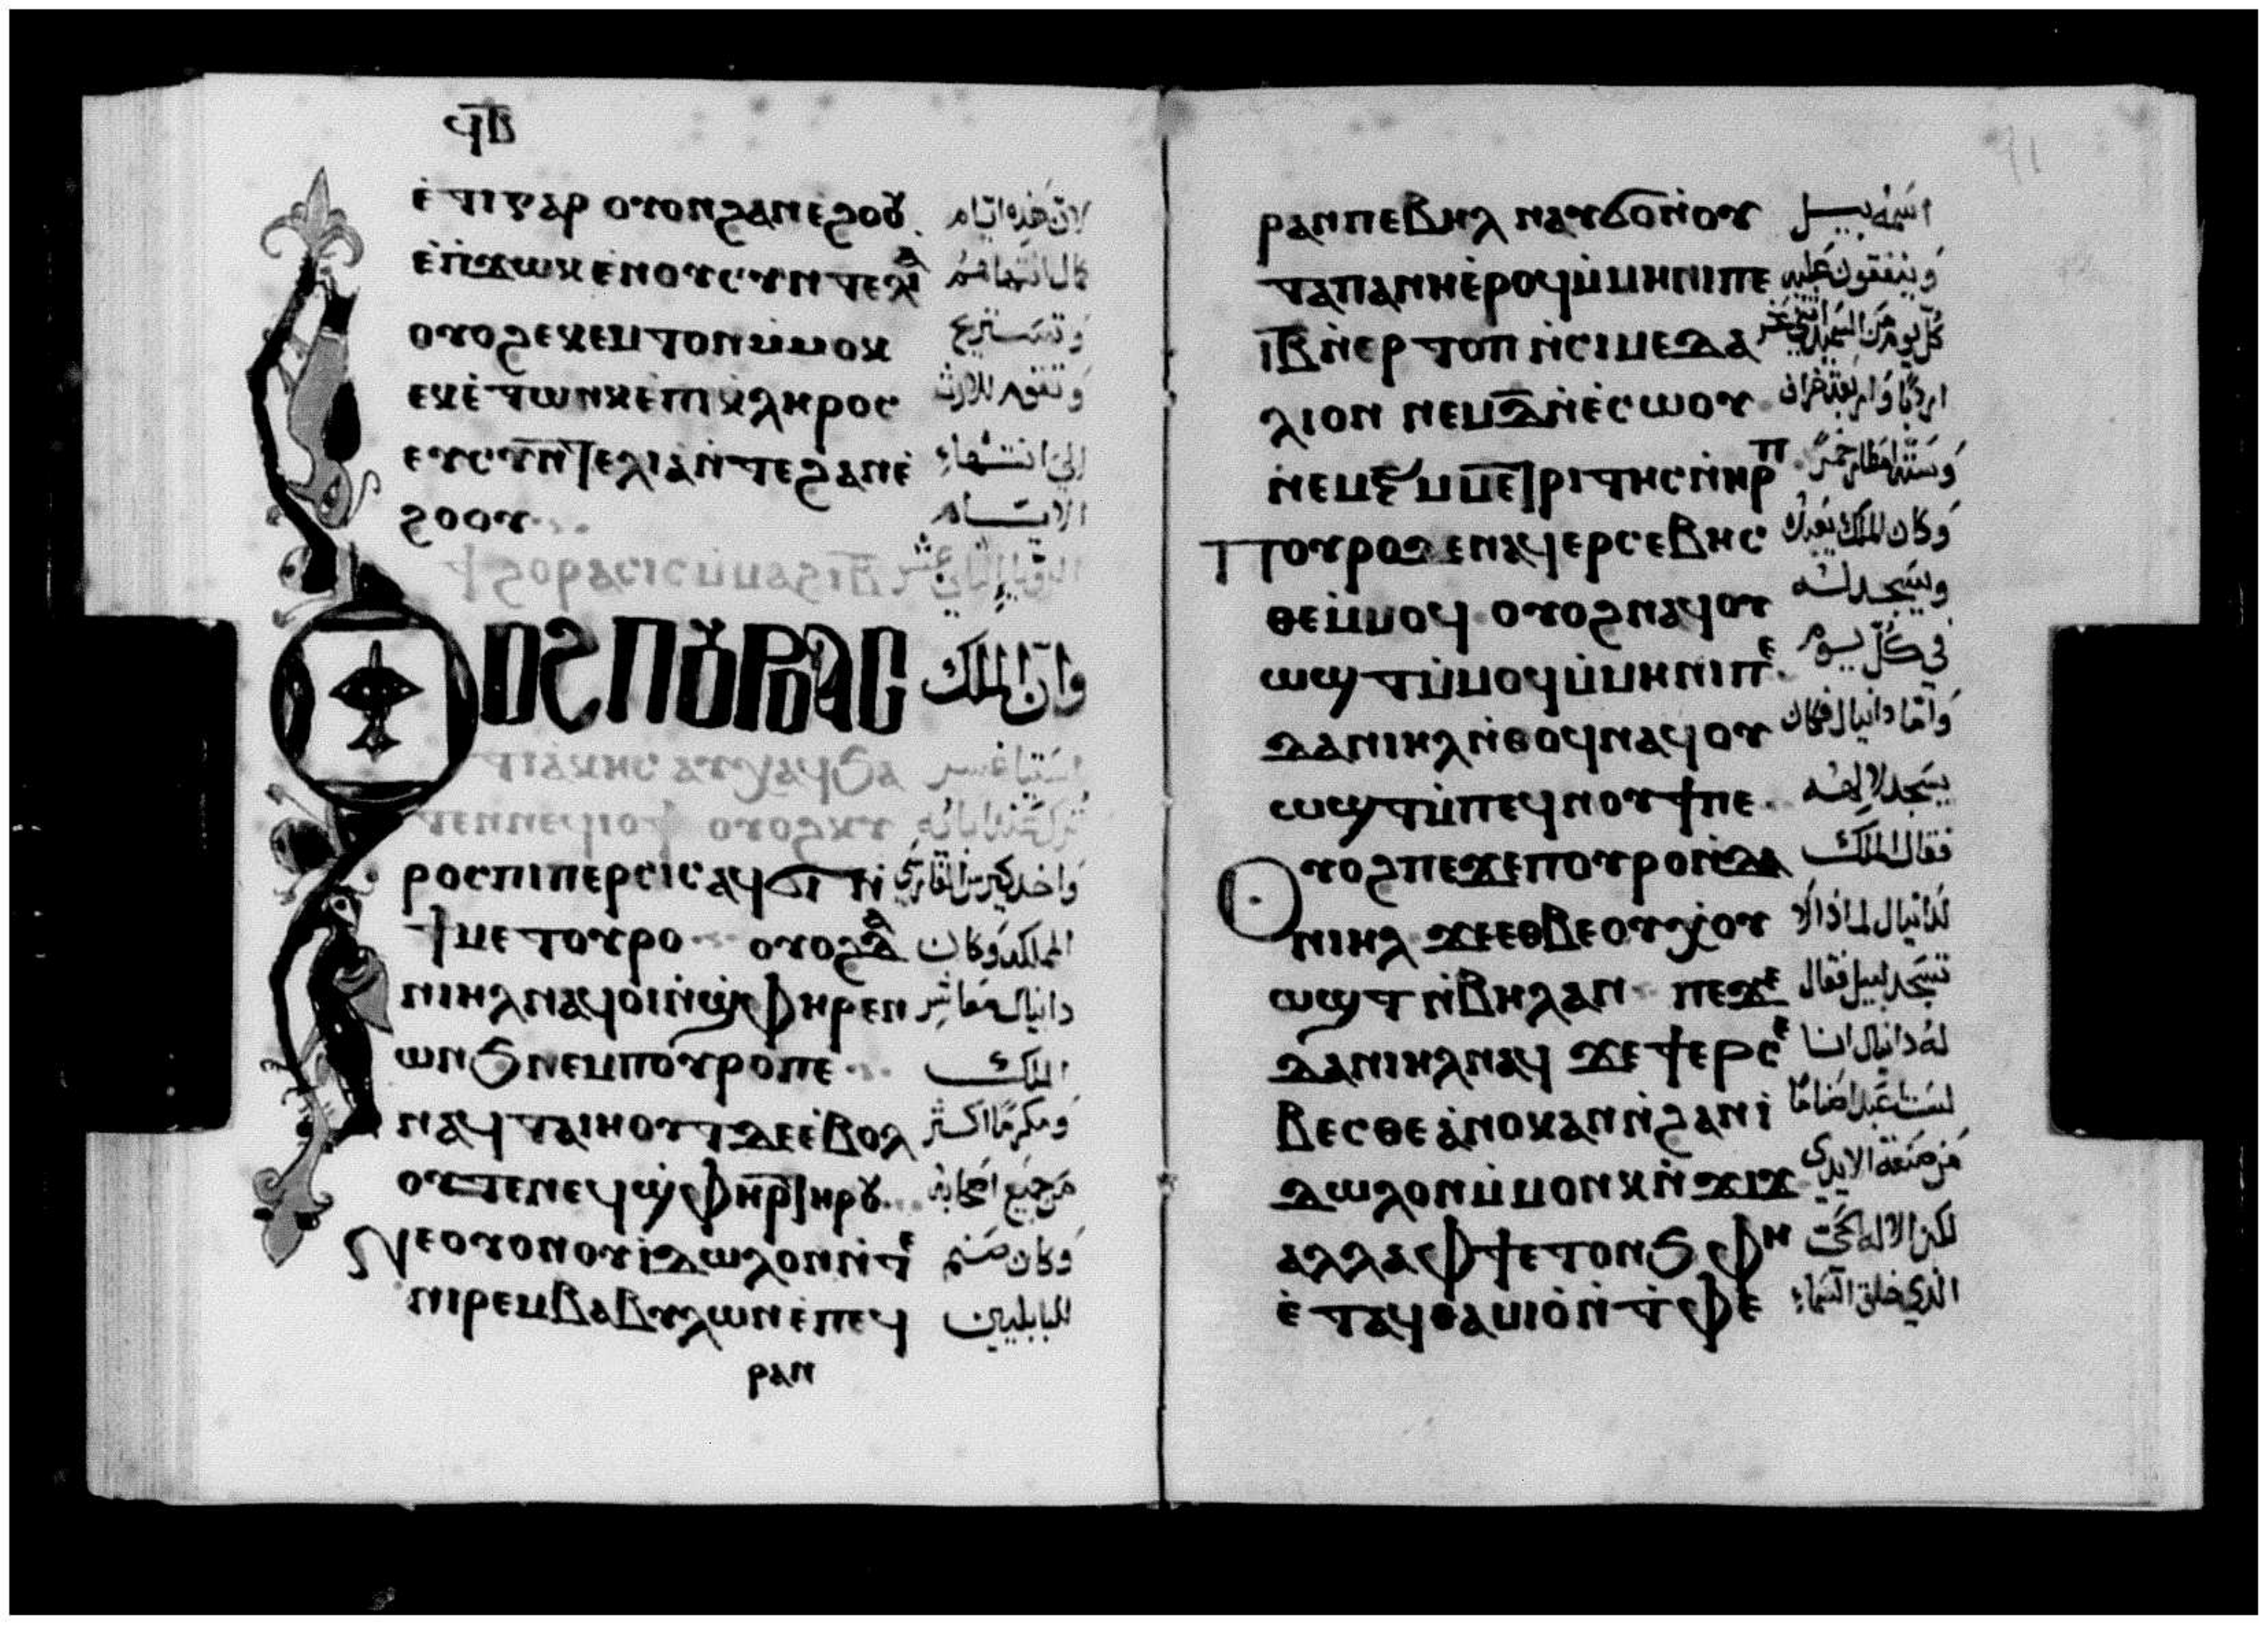 ϥⲃ̅
ⲉ̇ⲧⲓⲅⲁⲣ ⲟⲩⲟⲛϩⲁⲛⲉ̇ϩⲟⲟⲩ لان هذه ايام
ⲉ̇ⲡϫⲱⲕ ⲉⲛⲟⲩⲥⲩⲛⲧⲉⲗⲓⲁ كمال انتهاهم
ⲟⲩⲟϩⲉⲕⲉⲙⲧⲟⲛⲙ̇ⲙⲟⲕ وتستريح
ⲉⲕⲉ̇ⲧⲱⲛⲕ ⲉ̇ⲡⲓⲕ̇ⲗⲏⲣⲟⲥ وتقوم للارث
ⲉⲩⲥⲩⲛⲧⲉⲗⲓⲁⲛ̇ⲧⲉϩⲁⲛⲉ̇ الى انتهاء
ϩⲟⲟⲩ الايام
ϯϩⲟⲣⲁⲥⲓⲥⲙ̇ⲙⲁϩⲓⲃ̅ الرؤيا الثاني عشر
ⲟⲩⲟϩⲡⲟⲩⲣⲟⲁⲥ وان الملك
ⲧⲓⲁⲕⲏⲥ ⲁⲩⲭⲁϥϧⲁ
ⲧⲉⲛⲛⲉϥⲓⲟϯ ⲟⲩⲟϩⲕⲩ
ⲣⲟⲥⲡⲓⲡⲉⲣⲥⲓⲥⲁϥϭⲓ ⲛ̇ واخذ كيرس الفارسي
ϯⲙⲉⲧⲟⲩⲣⲟ ⲟⲩⲟϩⲇⲁ المملكه وكان
ⲛⲓⲏⲗⲛⲁϥⲟⲓⲛ̇ϣ̇ⲫⲏⲣⲉⲛ دانيال معاشر
ⲱⲛϧⲛⲉⲙⲡⲟⲩⲣⲟⲡⲉ الملك
ⲛⲁϥⲧⲁⲓⲏⲟⲩⲧϫⲉⲉ̇ⲃⲟⲗ ومكرما اكثر
ⲟⲩⲧⲉⲛⲉϥϣ̇ⲫⲏⲣⲧⲏⲣⲟⲩ من جميع اصحابه
ⲛⲉⲟⲩⲟⲛⲟⲩⲓ̇ⲇⲱⲗⲟⲛⲛ̇ⲧⲉ وكان صنم
ⲛⲓⲣⲉⲙⲃⲁⲃⲩⲗⲱⲛⲉ̇ⲡⲉϥ للبابليين
ⲣⲁⲛ
ⲣⲁⲛⲡⲉⲃⲏⲗ ⲛⲁⲩϭⲟⲛ̇ⲟⲩ اسمه بيل
ⲧⲁⲡⲁⲛⲏⲉ̇ⲣⲟϥⲙ̇ⲙⲏⲛⲓⲡⲉ وينفقون عليه
ⲓⲃ̅ⲛ̇ⲉⲣⲧⲟⲡ ⲛ̇ⲥⲓⲙⲉⲇⲁ كل يوم من السميد اثني عشر
ⲗⲓⲟⲛ ⲛⲉⲙⲇ̅ⲛ̇ⲉ̇ⲥⲱⲟⲩ اردبا واربعة خراف
ⲛ̇ⲉⲙⲝ̅ⲙⲙⲉⲧⲣⲓⲧⲏⲥⲛ̇ⲏⲣⲡ وستة امطار خمر
ⲡⲟⲩⲣⲟϫⲉⲛⲁϥⲉⲣⲥⲉⲃⲏⲥ وكان الملك يعبده
ⲑⲉⲙ̇ⲙⲟϥ ⲟⲩⲟϩⲛⲁϥⲟⲩ ويسجد له
ⲱϣⲧⲙ̇ⲙⲟϥⲙ̇ⲙⲏⲛⲓⲡⲉ في كل يوم
ⲇⲁⲛⲓⲏⲗⲛ̇ⲑⲟϥⲛⲁϥⲟⲩ واما دانيال فكان
ⲱϣⲧⲙ̇ⲡⲉϥⲛⲟⲩϯⲡⲉ يسجد لالهه
ⲟⲩⲟϩⲡⲉϫⲉⲡⲟⲩⲣⲟⲛ̇ⲇⲁ فقال الملك
ⲛⲓⲏⲗ ϫⲉⲉⲑⲃⲉⲟⲩⲭ̇ⲟⲩ لدانيال لماذا لا
ⲱϣⲧⲛ̇ⲃⲏⲗⲁⲛ ⲡⲉϫⲉ تسجد لبيل فقال
ⲇⲁⲛⲓⲏⲗⲛⲁϥ ϫⲉϯⲉⲣⲥⲉ له دانيال انا
ⲃⲉⲥⲑⲉⲁ̇ⲛⲟⲕⲁⲛⲛ̇ϩⲁⲛⲓ̇ لست اعبد اصناما
ⲇⲱⲗⲟⲛⲙ̇ⲙⲟⲛⲕⲛ̇ϫⲓϫ من صنعة الايدي
ⲁⲗⲗⲁⲫϯⲉⲧⲟⲛϧ ⲫⲏ لكن الاله الحي
ⲉ̇ⲧⲁϥⲑⲁⲙⲓⲟ̇ⲛ̇ⲧ̇ⲫⲉ الذي خلق السماء